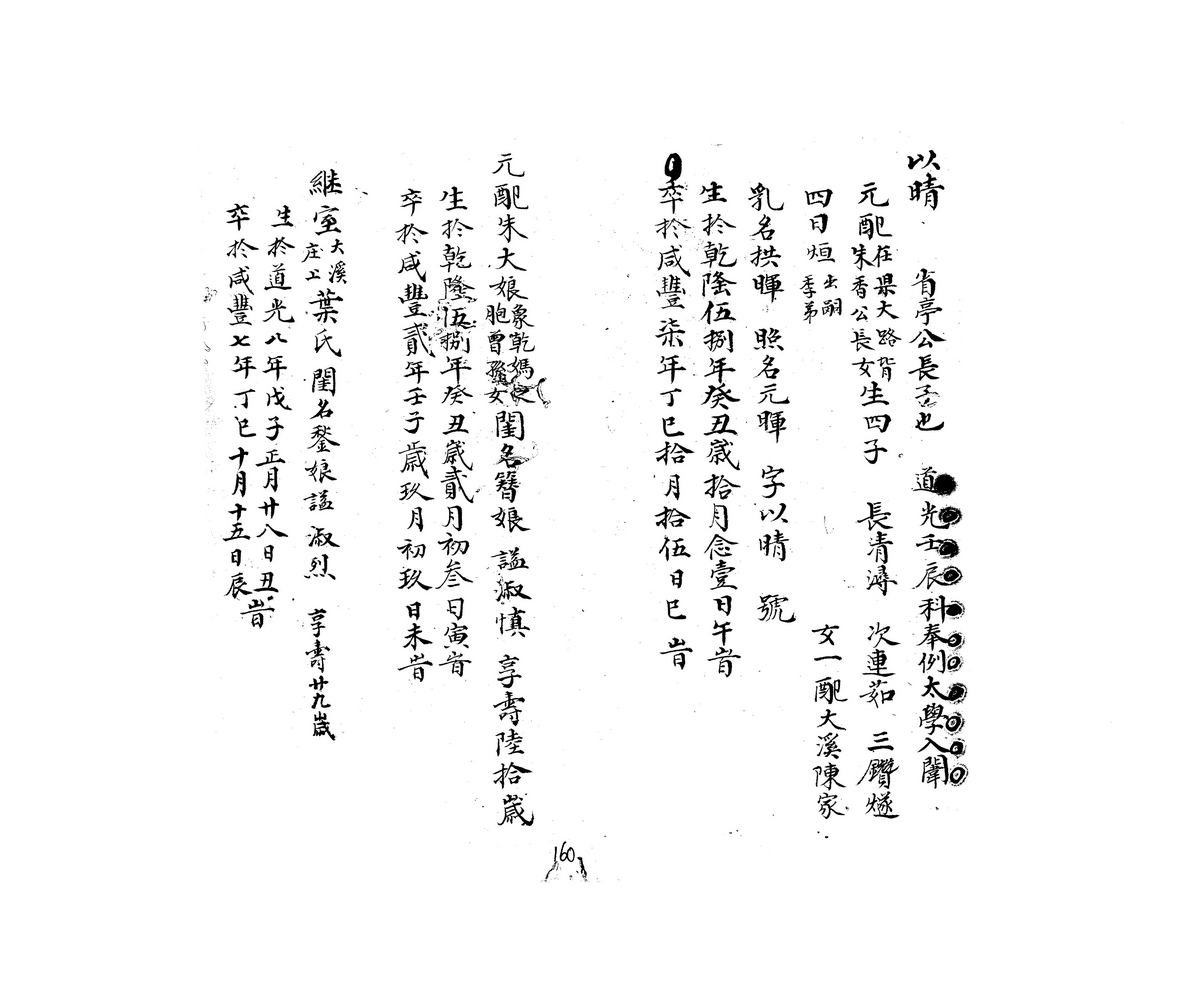 以晴 省亭公長子也 道光壬辰科奉例太學入闈
元配在杲大路背朱香公長女生四子 長清潯 次連茹 三鑽燧
四日烜出嗣季弟 女一配大溪陳家
乳名拱暉 照名元暉 字以晴 號
生於乾隆伍捌年癸丑歲拾月念壹日午旹
卒於咸豐柒年丁巳拾月拾伍日巳旹
元配朱大娘象乾媽之胞曾孫女閨名簪娘 謚淑慎 享壽陸拾歲
生於乾隆伍捌年癸丑歲貳月初叁日寅旹
卒於咸豐貳年壬子歲玖月初玖日未旹
継室大溪庄上葉氏 閨名鍪娘謚淑烈 享壽廿九歲
生於道光八年戊子正月廿八日丑旹
卒於咸豐七年丁巳十月十五日辰
160